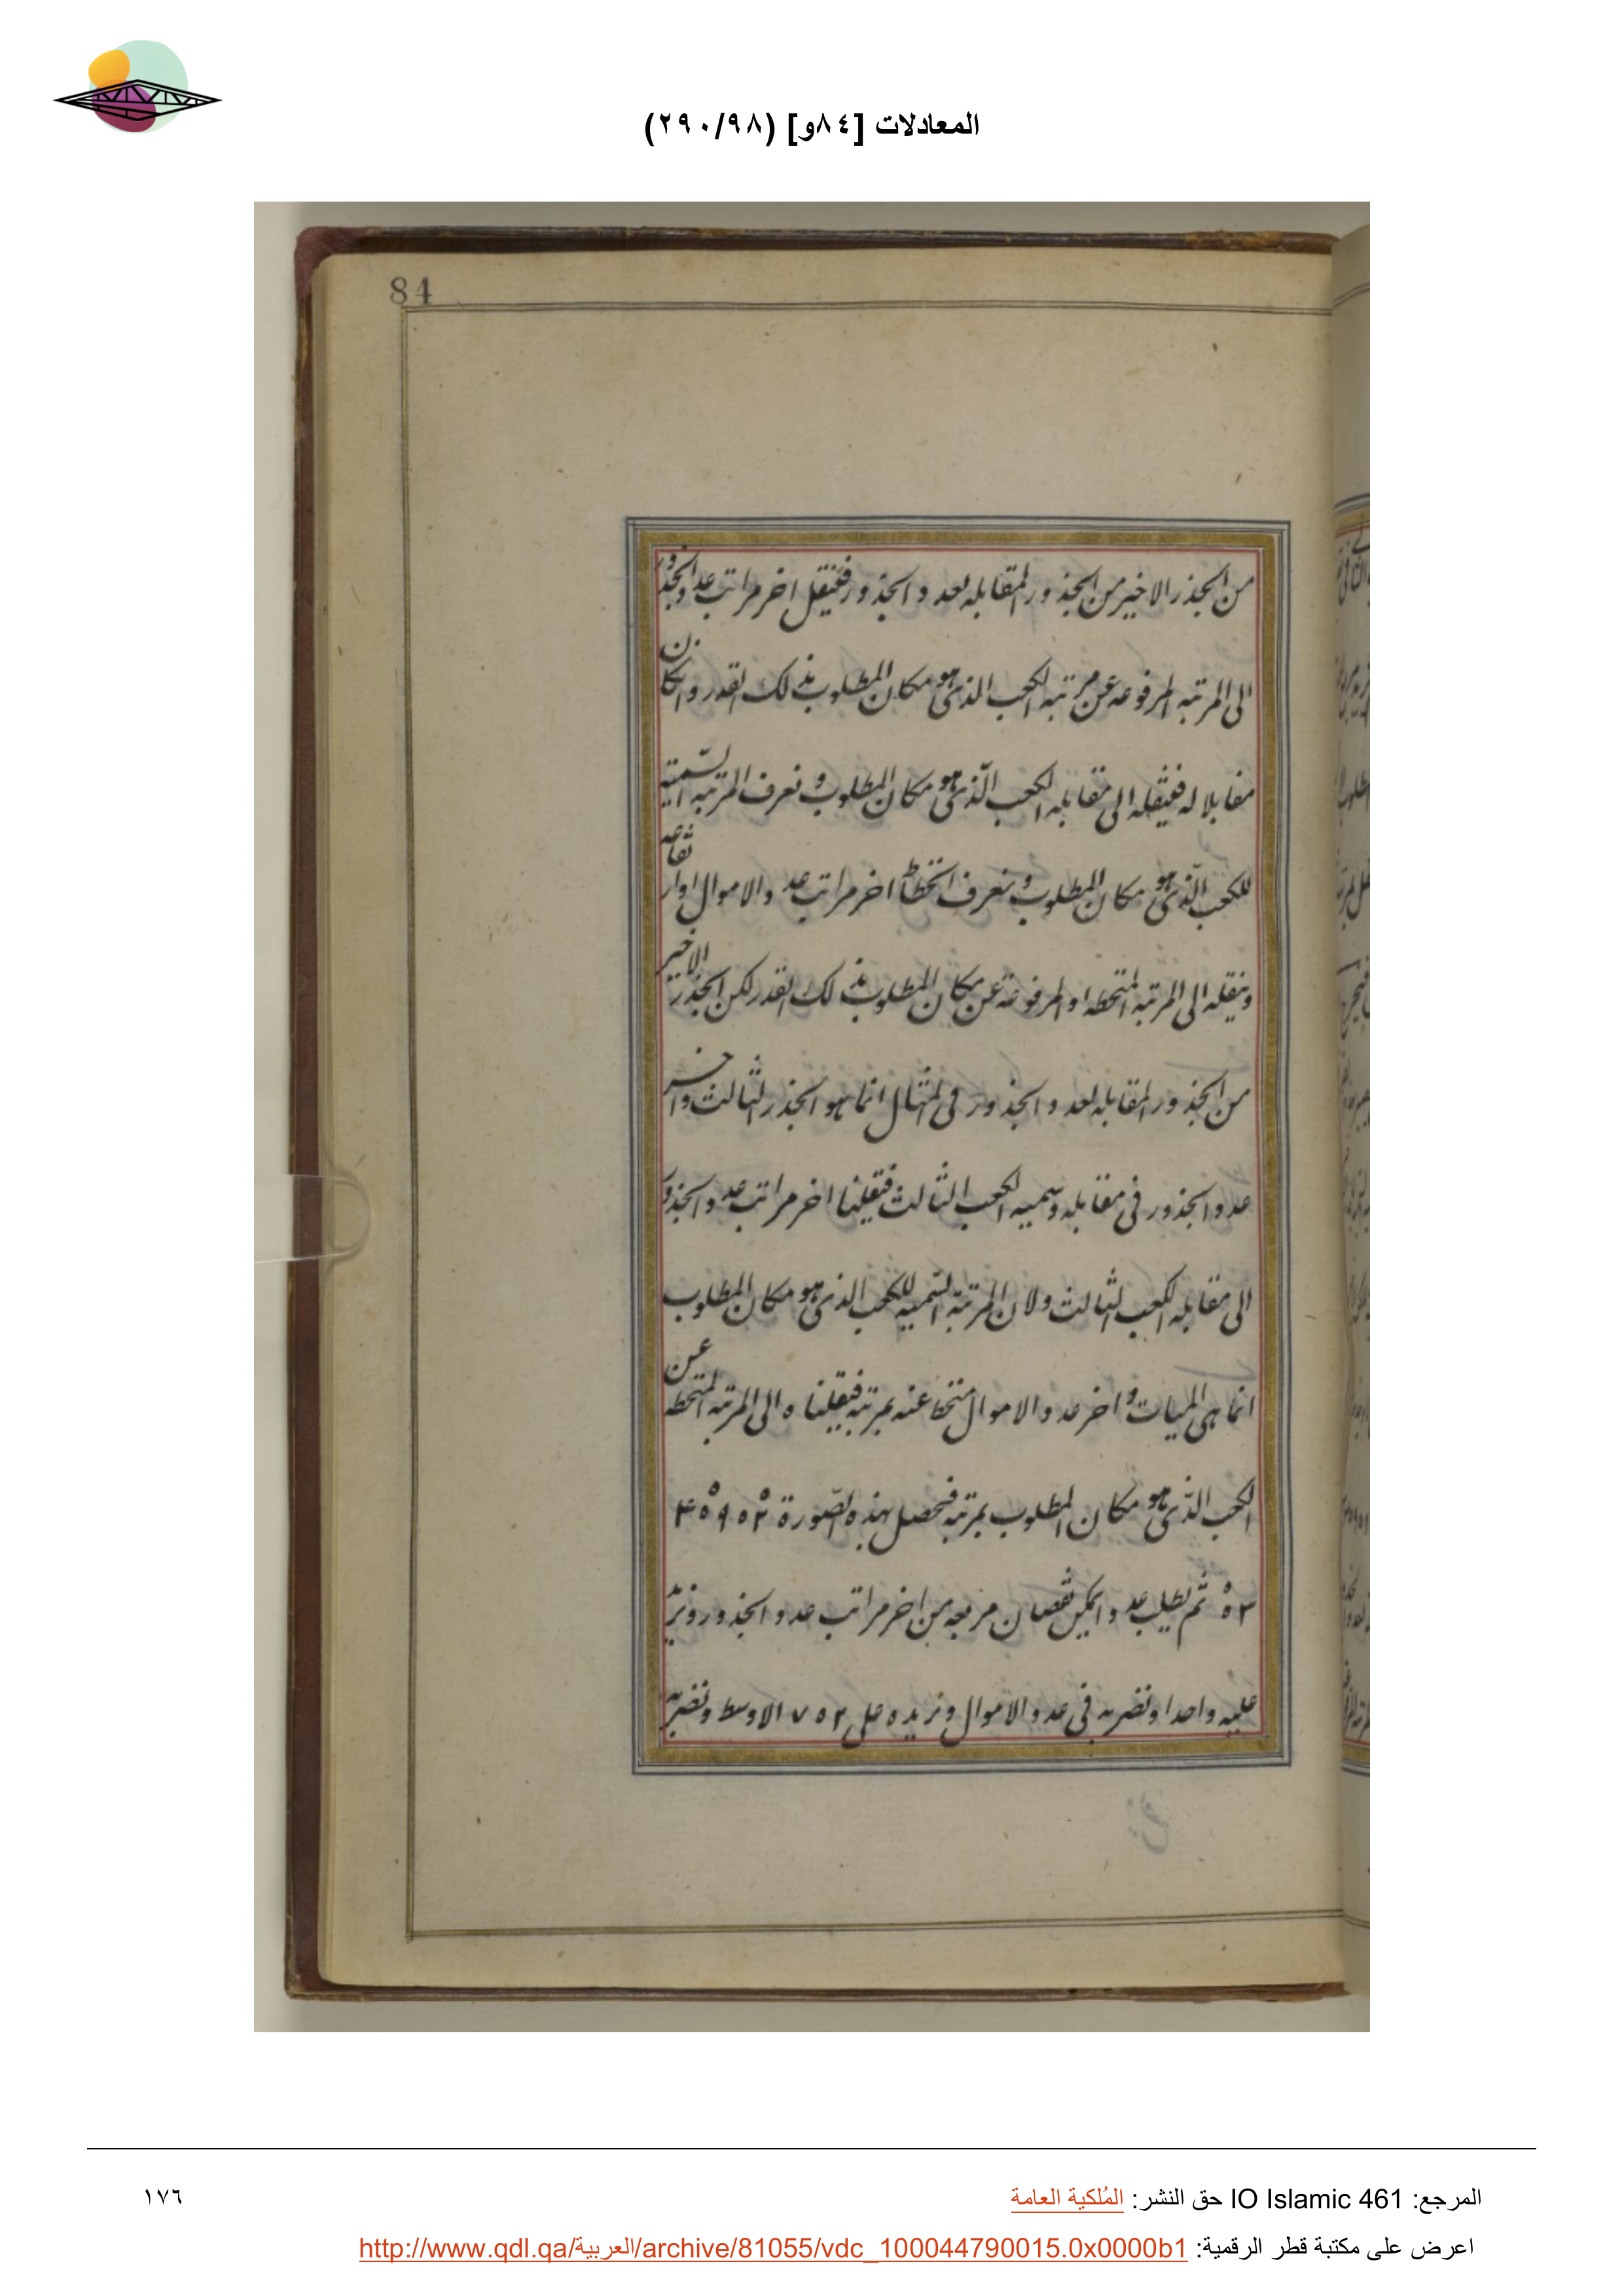 المعادلات [٨٤و] (٢٩٠/٩٨)
84
من الجذر الاخير من الجذور المقابله لعدد الجذور فننقل اخر مراتب عدد الجذور
الى المرتبه المرفوعه عن مرتبه الكعب الذى هو مكان المطلوب بذلك القدر وان كان
مقابلا له فننقله الى مقابله الكعب الذى هو مكان المطلوب و نعرف المرتبه السمية
للكعب الذى هو مكان المطلوب و نعرف انحطاط اخر مراتب عدد الاموال او ارتفاعه
وننقله الى المرتبه المنحطه او المرفوعة عن مكان المطلوب بذلك القدر لكن الجذر الاخير
من الجذور المقابله لعدد الجذور فى المثال انما هو الجذر الثالث واخر
عدد الجذور فى مقابله وسميه الكعب الثالث فنقلنا اخر مراتب عدد الجذور
الى مقابله الكعب الثالث ولان المرتبة السمية للكعب الذى هو مكان المطلوب
انما هى الميات و اخر عدد الاموال منحط عنه بمرتبة فنقلناه الى المرتبه المنحطه عن
الكعب الذى هو مكان المطلوب بمرتبة فحصل بهذه الصورة
ثم نطلب عددا يمكن نقصان مربعه من اخر مراتب عدد الجذور ونزيد
عليه واحدا ونضربه فى عدد الاموال ونزيده على ٧٥٢ الاوسط ونضربه
المرجع: IO Islamic 461 حق النشر: المُلكية العامة
١٧٦
اعرض على مكتبة قطر الرقمية: http://www.qdl.qa/العربية/archive/81055/vdc_100044790015.0x0000b1